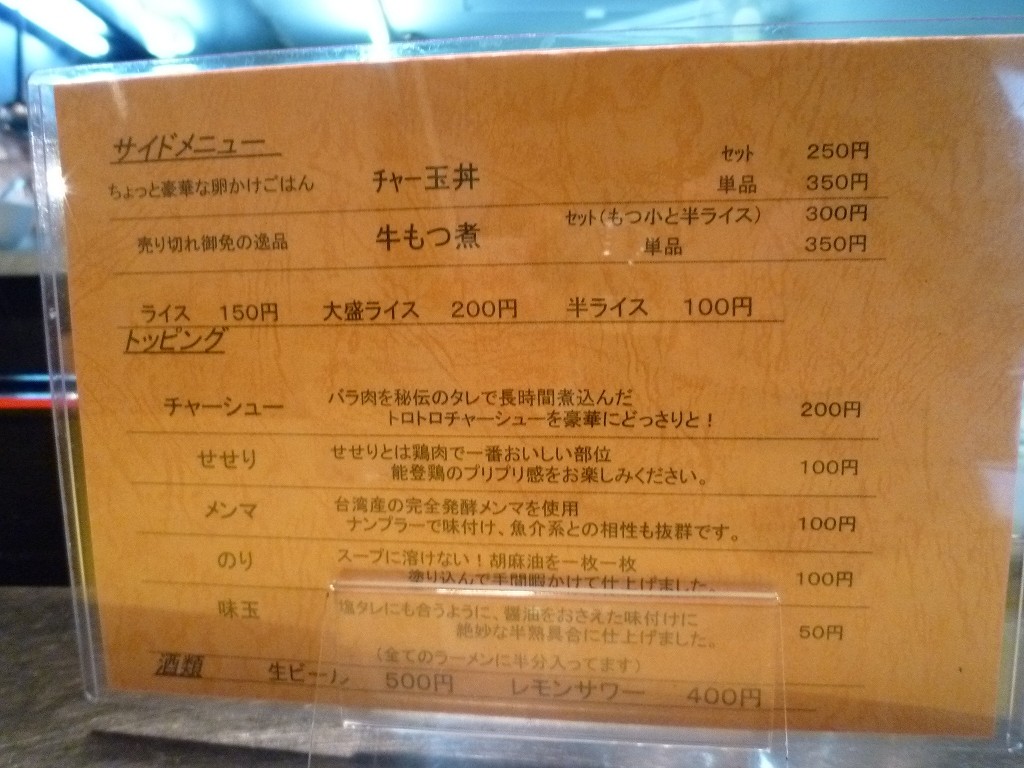 サイドメニュー
セット 250円
ちょっと豪華な卵かけごはん チャー玉丼 単品 350円
セット(もつ小と半ライス) 300円
売り切れ御免の逸品 牛もつ煮 単品 350円
ライス 150円 大盛ライス 200円 半ライス 100円
トッピング
チャーシュー バラ肉を秘伝のタレで長時間煮込んだ
トロトロチャーシューを豪華にどっさりと! 200円
せせり せせりとは鶏肉で一番おいしい部位
能登鶏のプリプリ感をお楽しみください。 100円
メンマ 台湾産の完全発酵メンマを使用
ナンプラーで味付け、魚介系との相性も抜群です。 100円
のり スープに溶けない!胡麻油を一枚一枚
塗り込んで手間暇かけて仕上げました。 100円
味玉 塩タレにも合うように、醤油をおさえた味付けに
絶妙な半熟具合に仕上げました。 50円
(全てのラーメンに半分入ってます)
酒類 生ビール 500円 レモンサワー 400円